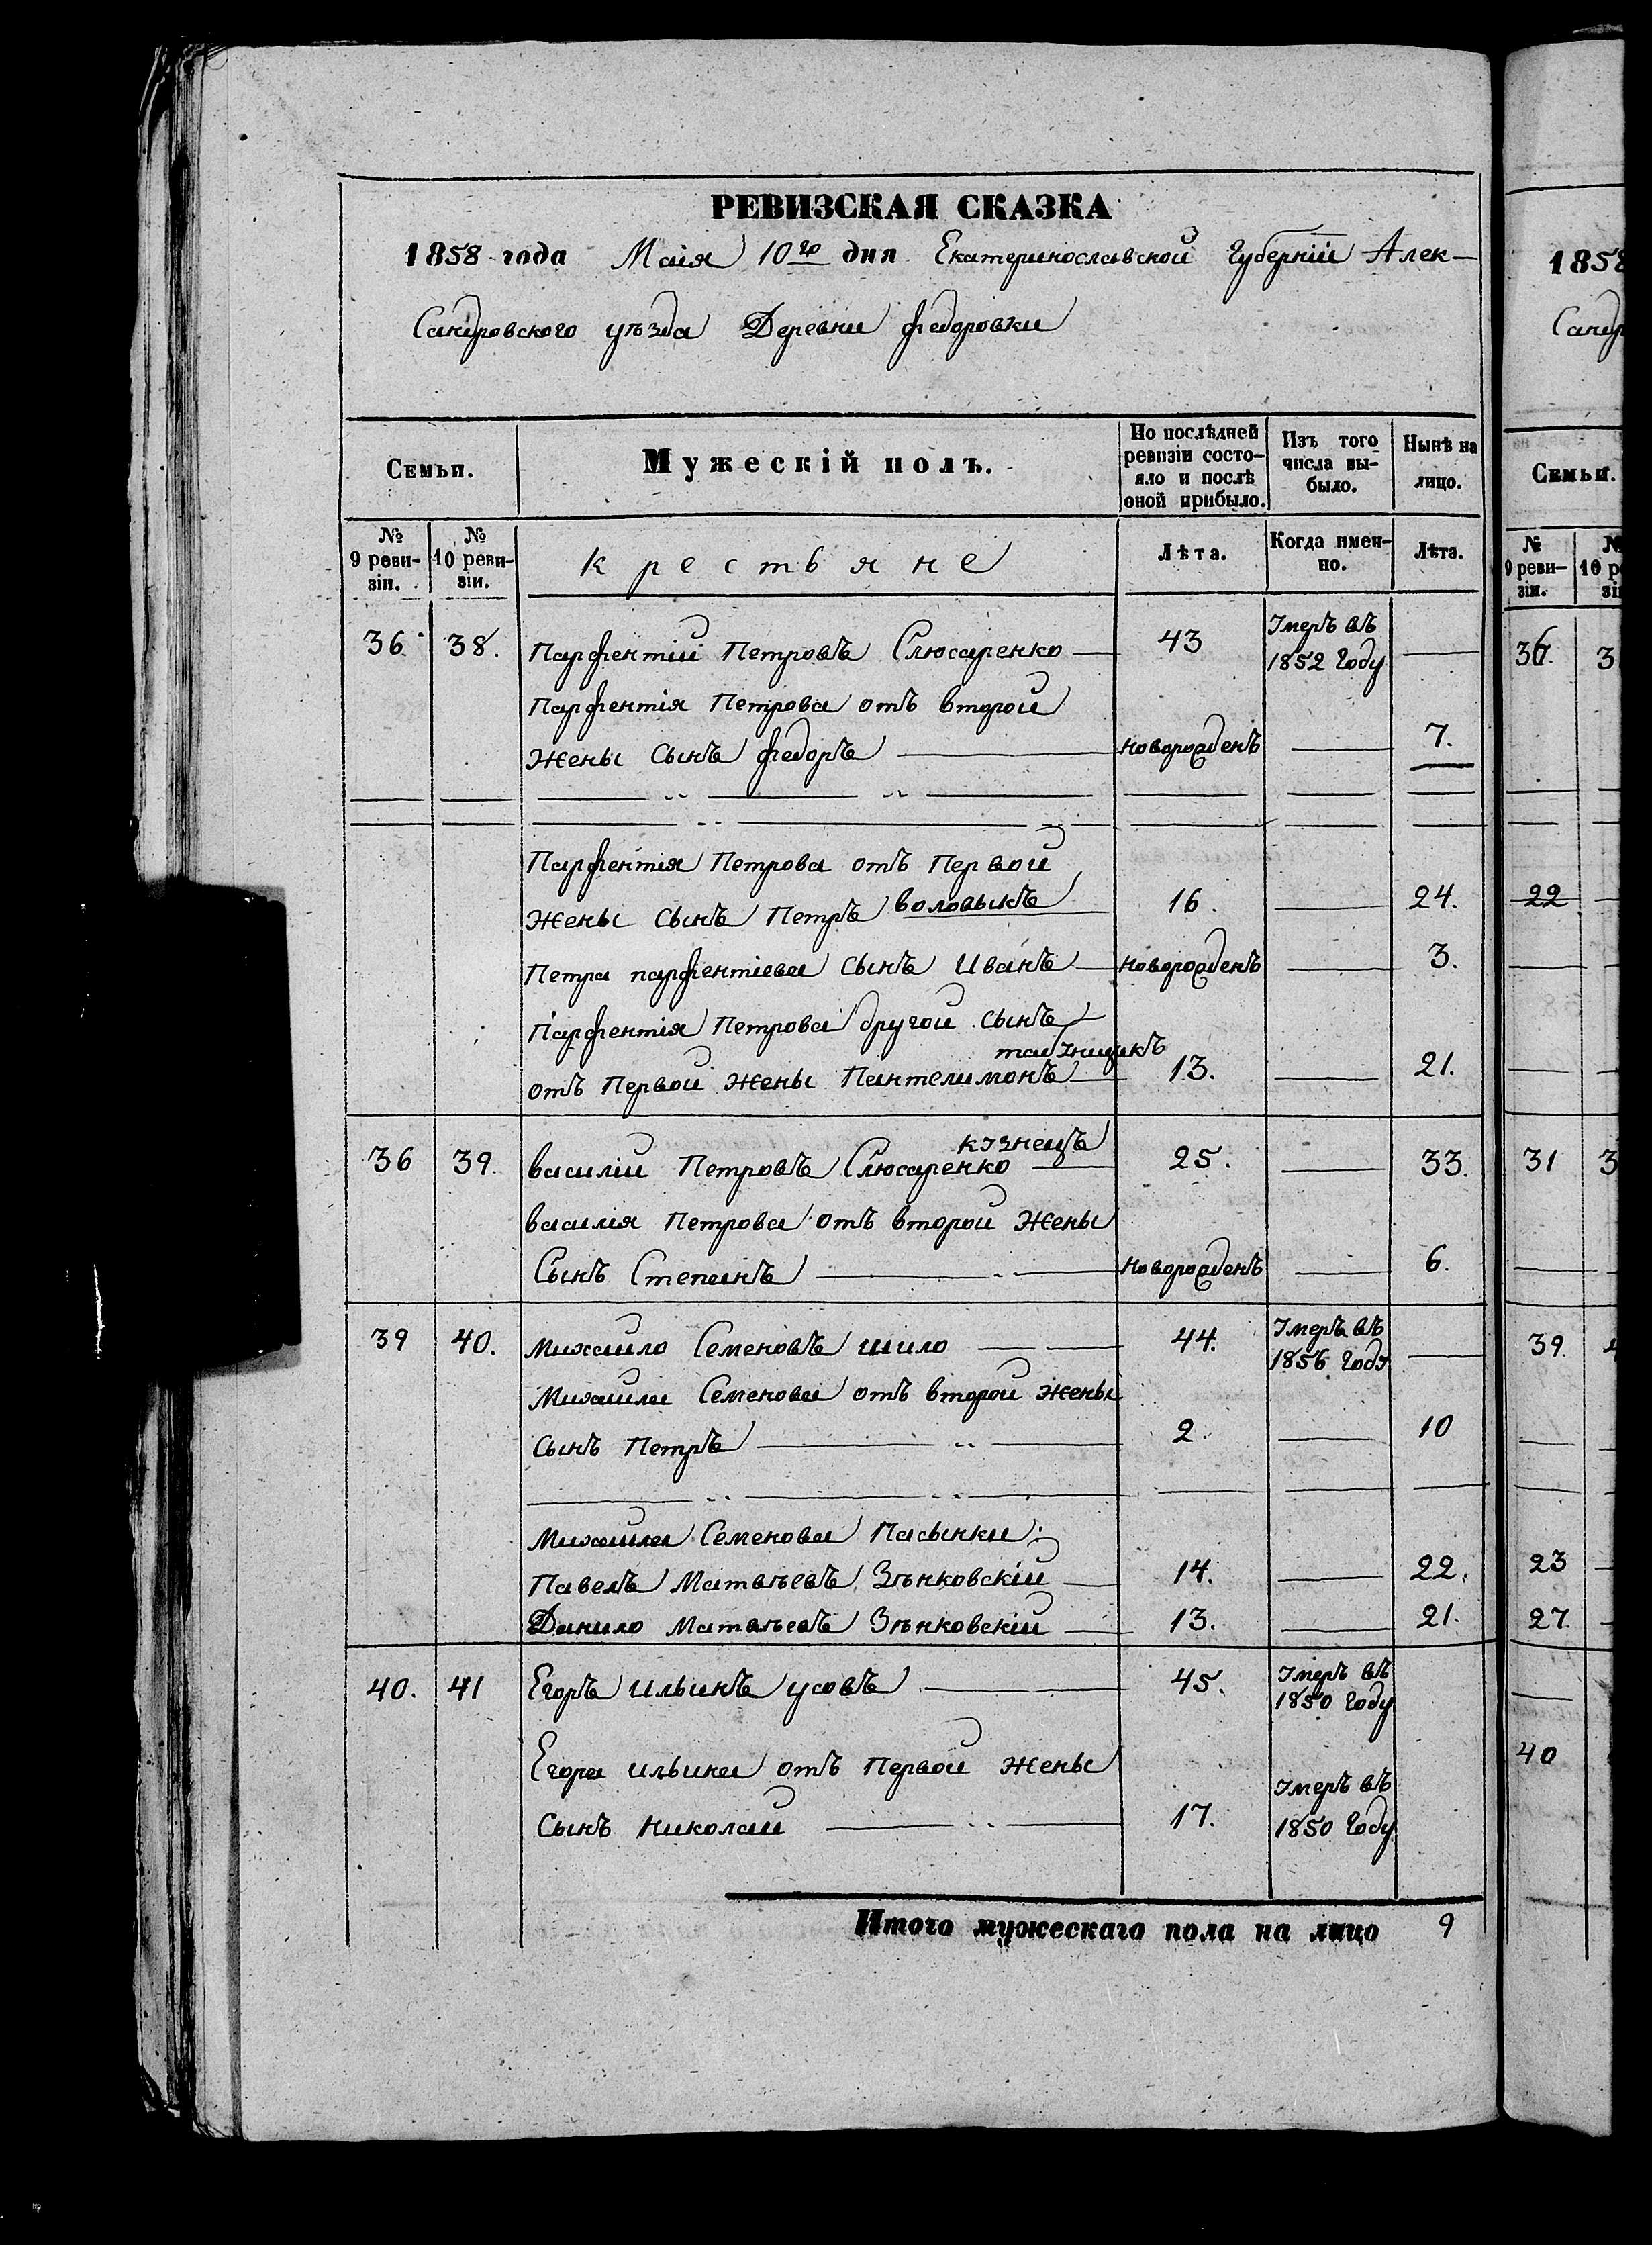 РЕВИЗСКАЯ СКАЗКА
1858 года Маія 10го дня Екатеринославской Губерніи Алек-
Сандровского уѣзда Деревни Федоровки
Семьи. Мужескій полъ. По послѣдней ревизіи состояло и послѣ оной прибыло. Изъ того числа выбыло. Нынѣ на лицо.
№ 9 ревизіи. № 10 ревизіи. крестьяне Лѣта. Когда именно. Лѣта.
36 38. Парфентій Петровъ Слюсаренко 43 Умеръ въ 1852 Году
Парфентія Петрова отъ второй
Жены Сынъ Федоръ новорожденъ 7.
Парфентія Петрова отъ Первой
Жены Сынъ Петръ воловыкъ 16. 24.
Петра парфентіева Сынъ Иванъ новорожденъ 3.
Парфентія Петрова другой Сынъ
отъ Первой Жены Пантелимонъ 13. 21.
кузнецъ
36 39. василій Петровъ Слюсаренко 25. 33.
василія Петрова отъ второй Жены
Сынъ Степанъ новорожденъ 6.
39 40. Михайло Семеновъ шило 44. Умеръ въ 1856 Году
Михайла Семенова отъ второй Жены
Сынъ Петръ 2. 10
Михайла Семенова Пасынки:
Павелъ Матвѣевъ Зѣнковскій 14. 22.
Данило Матвѣевъ Зѣнковскій 13. 21.
40. 41 Егоръ Ильинъ усовъ 45. Умеръ въ 1850 Году
Егора Ильина отъ Первой Жены
Сынъ Николай 17. Умеръ въ 1850 Году
Итого мужескаго пола на лицо 9
1858
Сандр
Семьи.
№ 9 ревизіи. № 10 р
36. 3
22
31 3
39. 4
23
27.
40